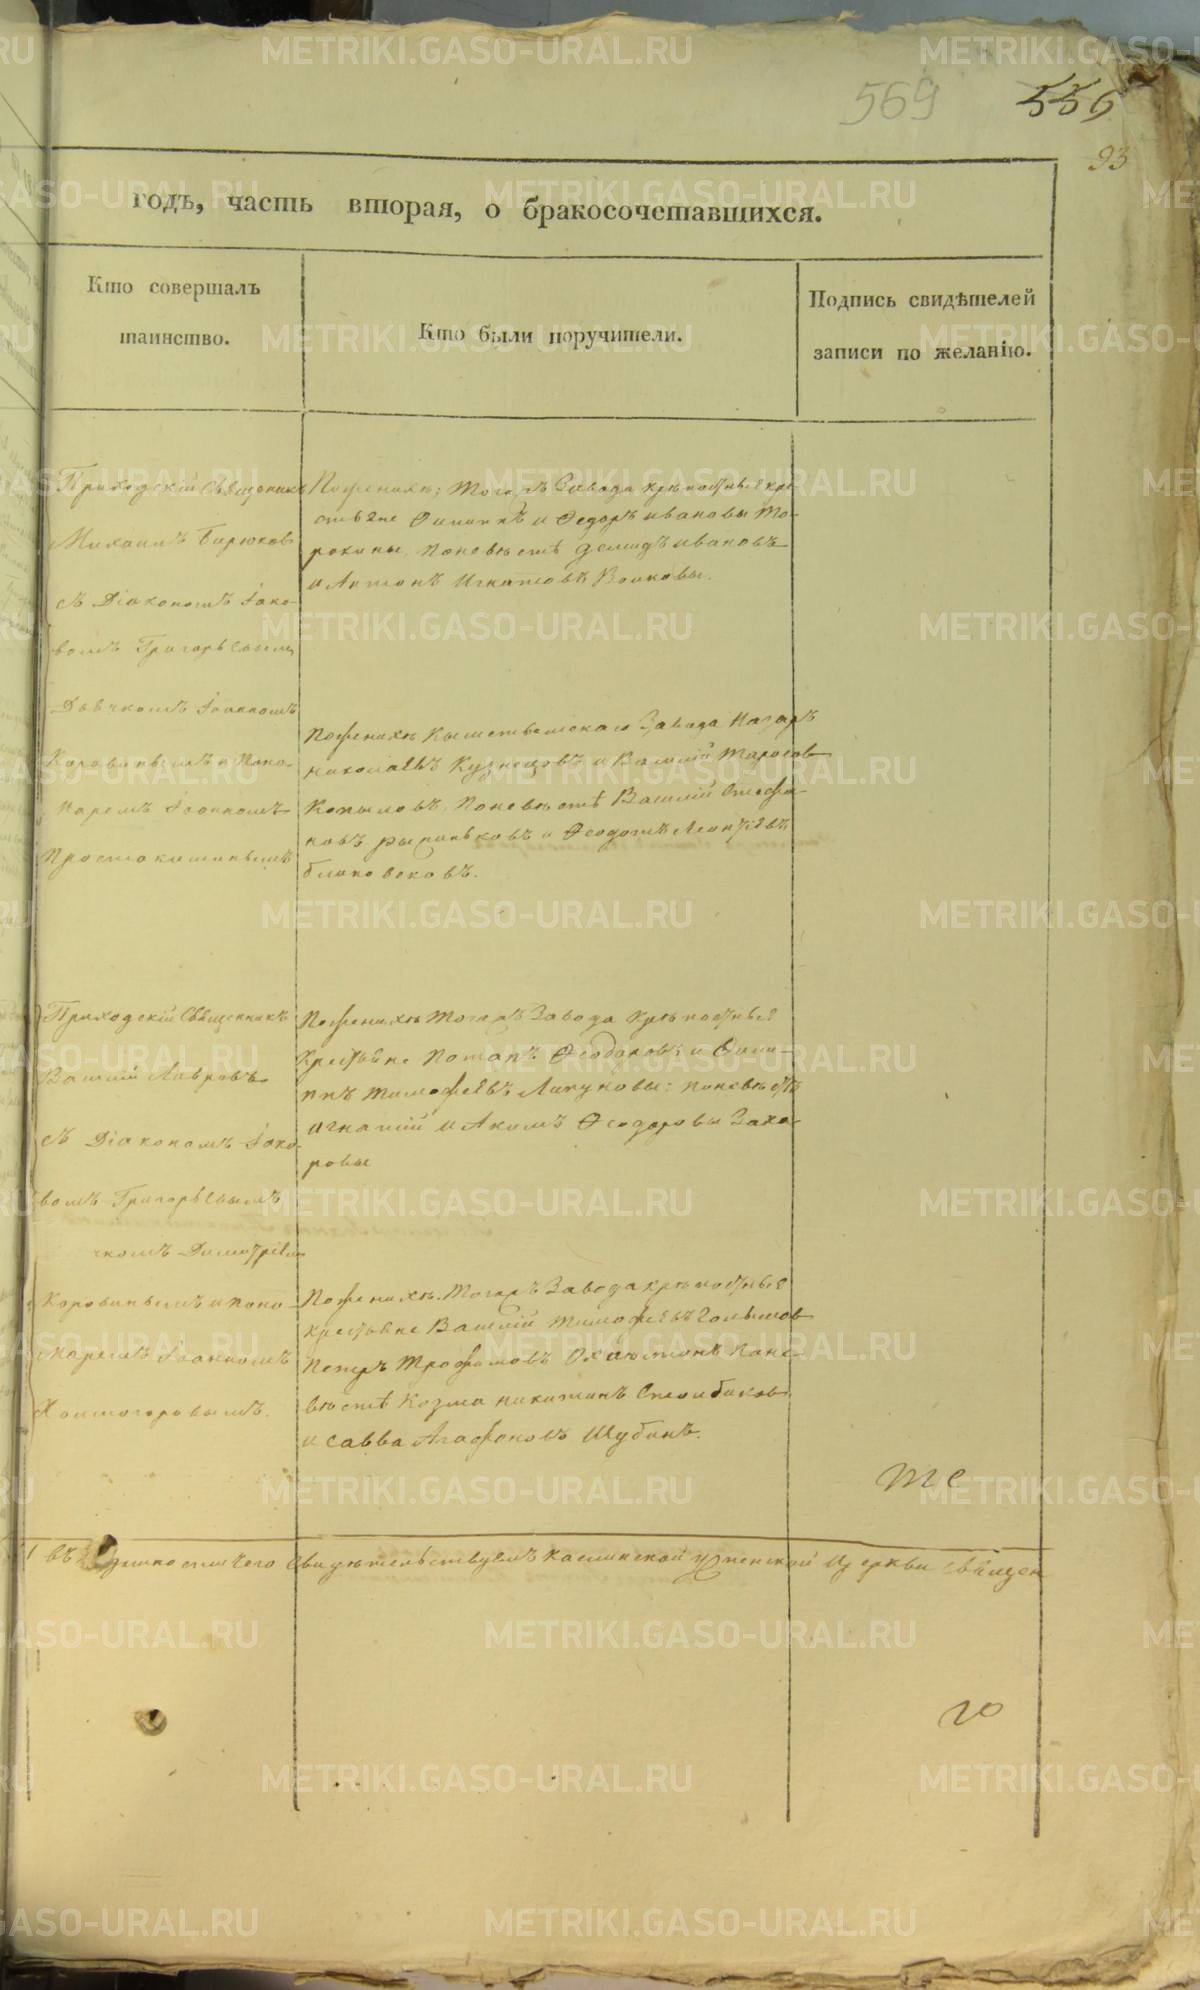 569 556
93
годъ, часть вторая, о бракосочетавшихся.
Кто совершалъ
таинство.
Кто были поручители.
Подпись свидѣтелей
записи по желанію.
Приходскій Священникъ
Михаилъ Бирюковъ
съ Діакономъ Іако-
вомъ Григорьевымъ
Дьячкомъ Іоанномъ
Коровинымъ и Поно-
маремъ Іоанномъ
Простокишинымъ
Поженихѣ; тогожъ Завода крѣпостныя кре-
стьяне Филиппъ и Федоръ Ивановы То-
рохины, Поневѣстѣ Демидъ Ивановъ
и Антонъ Игнатовъ Волковы.
Поженихѣ Кыштымскаго Завода Назаръ
Николаевъ Кузнецовъ и Василій Тарасовъ
Копыловъ, Поневѣстѣ Василій Стефа-
новъ и Феодотъ Леонтьевъ
Блиновсковъ.
Приходскій Священникъ
Василій Лавровъ
съ Діакономъ Іако-
вомъ Григорьевымъ
чкомъ Димитріемъ
Коровинымъ и Поно-
маремъ Іоанномъ
Холмогоровымъ.
Поженихѣ Тогожъ Завода Крѣпостныя
Крестьяне Потапъ Феодоровъ и Фили-
ппъ Тимофеевъ Лапуновы: Поневѣстѣ
Игнатій и Акимъ Феодоровы Заха-
ровы
Поженихѣ. Тогожъ Завода крѣпостныя
крестьяне Василій Тимофеевъ Голышовъ
Петръ Трофимовъ Охлѣстинъ Поне-
вѣстѣ Козма Никитинъ Столбиковъ
и Савва Агафоновъ Шубинъ.
те
въ чего Свидѣтельствуемъ Каслинской Успенской Церкви Священ
го
METRIKI.GASO-URAL.RU